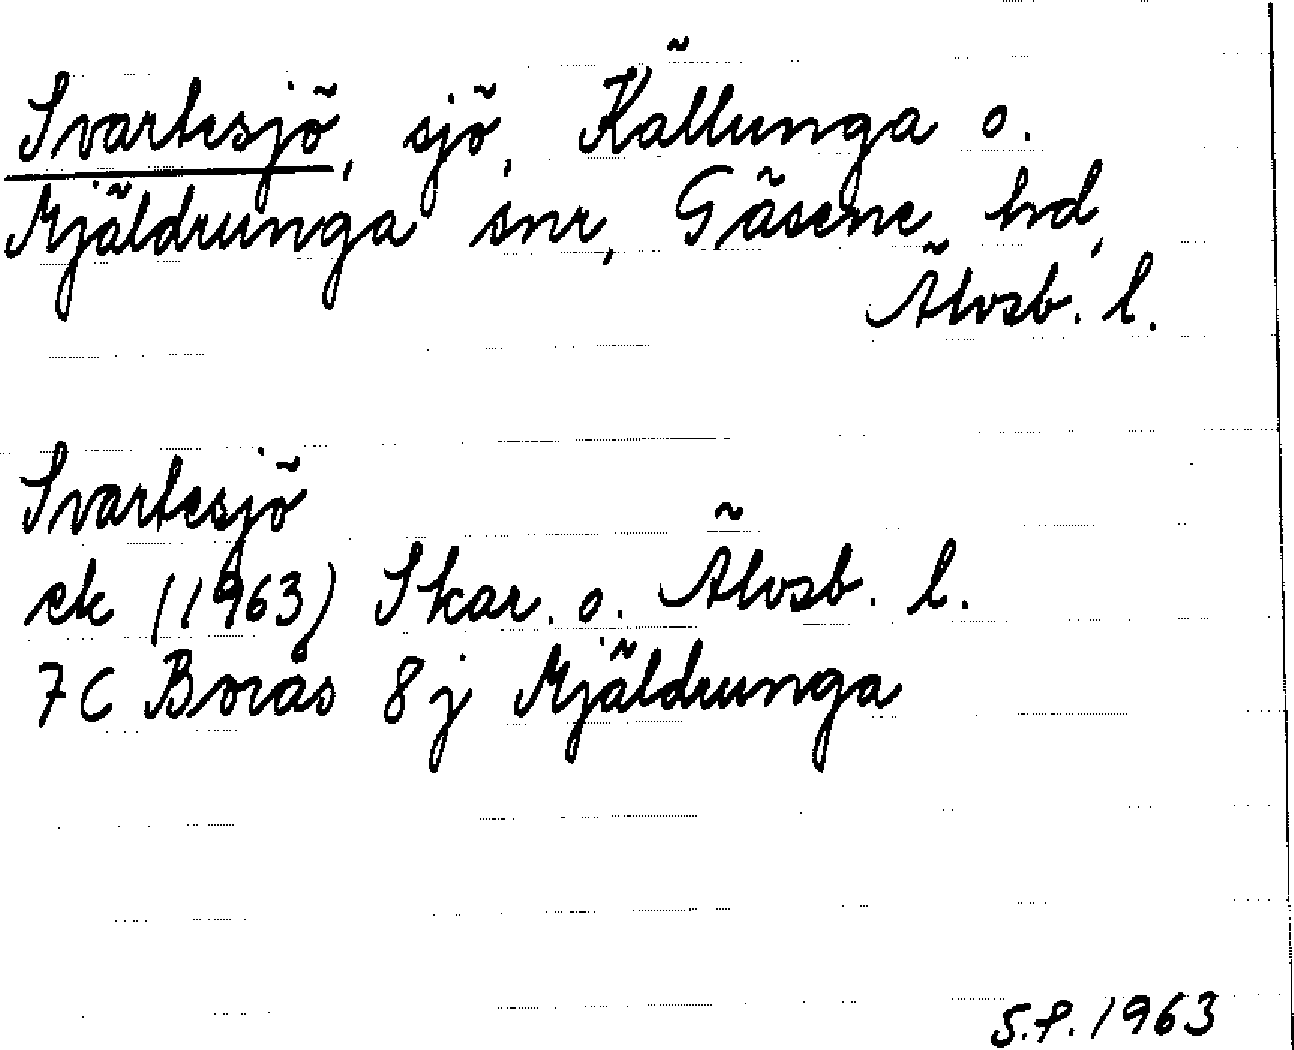 Svartesjö, sjö, Källunga o.
Mjäldrunga snr, Gäsene hd,
Älvsb. l.
Svartesjö
ek (1963) Skar. o. Älvsb. l.
7C Borås 8j Mjäldrunga
S.P. 1963